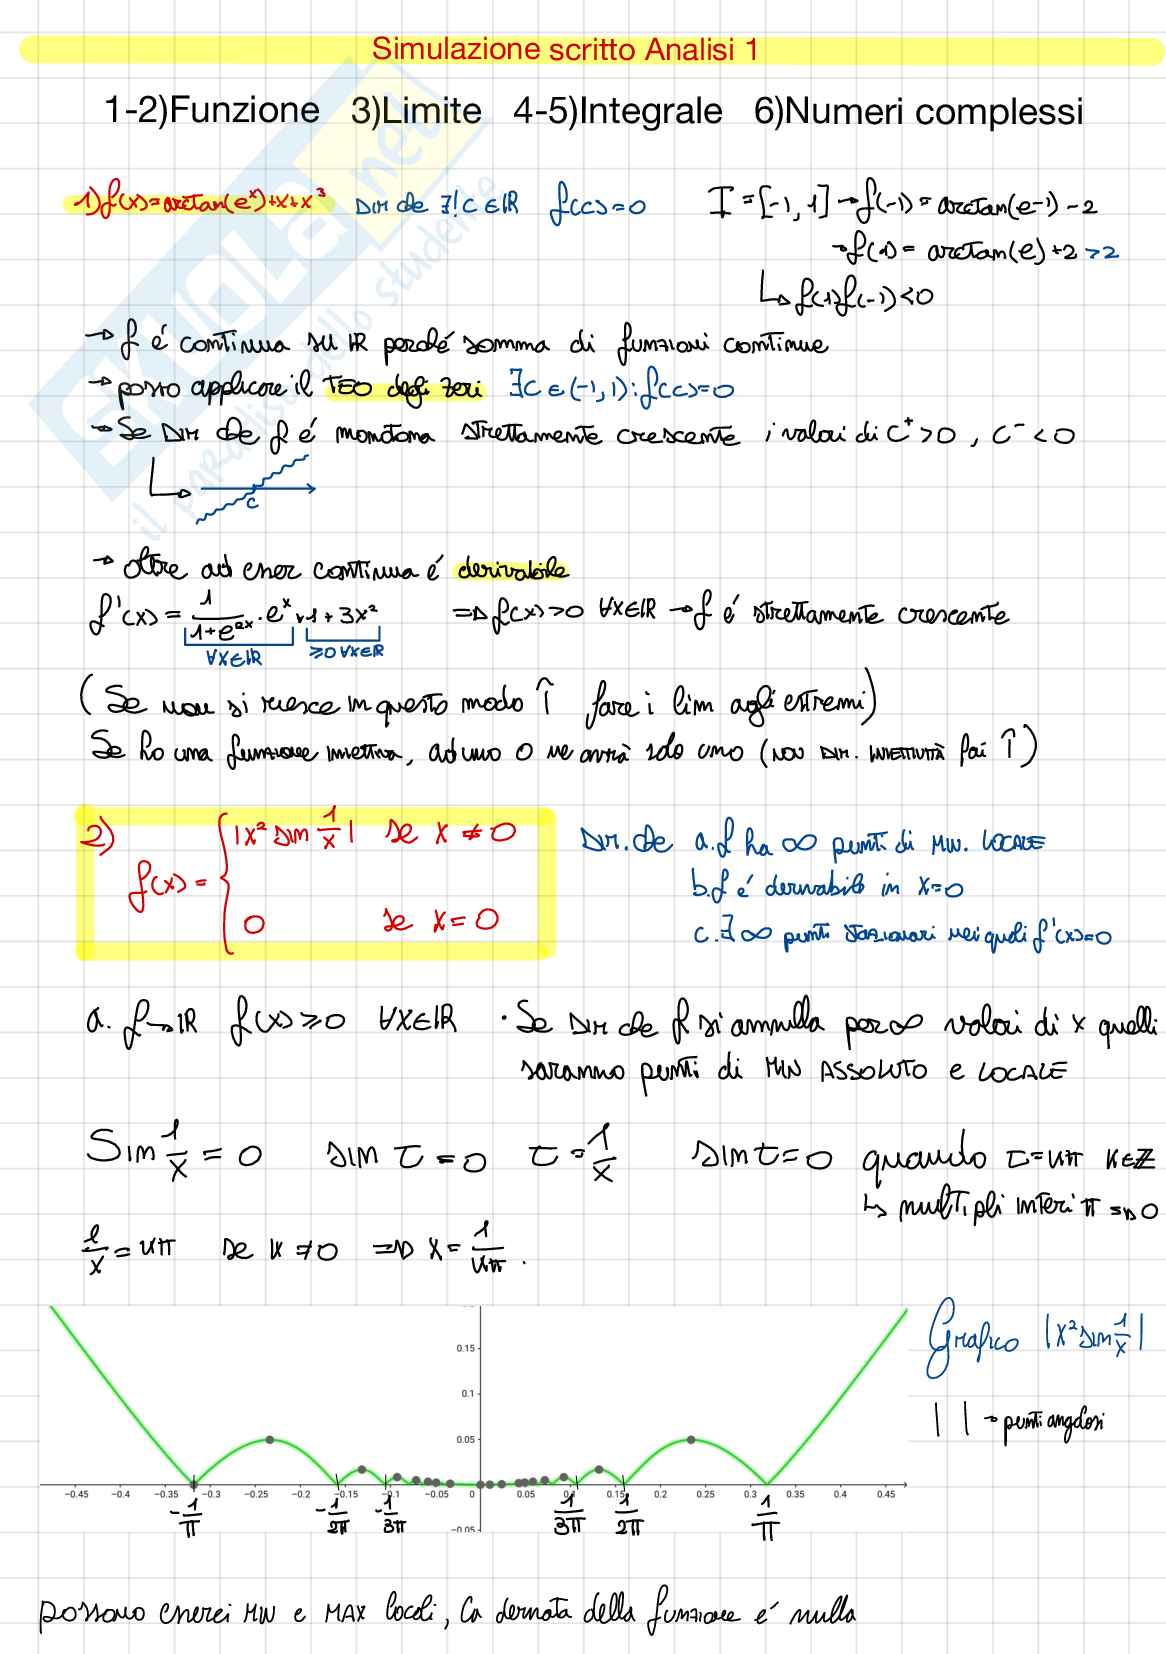 Simulazione scritto Analisi 1
1-2)Funzione 3)Limite 4-5)Integrale 6)Numeri complessi
1) f(x)=arctan(eˣ)+x+x³ DIM che ∃! C ∈ ℝ f(c)=0 I=[-1,1] → f(-1)=arctan(e-1)-2
→ f(1)= arctan(e)+2 >2
↳ f(1)f(-1)<0
→ f é continua su ℝ perché somma di funzioni continue
→ posso applicare il TEO degli zeri ∃c∈(-1,1):f(c)=0
→ Se DIM che f é monotona strettamente crescente i valori di C⁺>0, C⁻<0
c
→ oltre ad esser continua é derivabile
f'(x) = 1/(1+e²ˣ) · eˣ + 1 + 3x² ⇒ f(x)>0 ∀x∈ℝ → f é strettamente crescente
∀x∈ℝ ≥0 ∀x∈ℝ
(Se non si riesce in questo modo ↑ fare i lim agli estremi)
Se ho una funzione iniettiva, ad uno 0 ne avrà solo uno (NON DIM. INIETTIVITÀ fai ↑)
2) f(x) = { |x² sin 1/x| se x ≠ 0
0 se x = 0
DIM. che a. f ha ∞ punti di MIN. LOCALE
b. f é derivabile in x=0
c. ∃ ∞ punti stazionari nei quali f'(x)=0
a. f→ℝ f(x)≥0 ∀x∈ℝ · Se DIM che f si annulla per ∞ valori di x quelli
saranno punti di MIN ASSOLUTO e LOCALE
Sin 1/x = 0 sin t = 0 t = 1/x sin t = 0 quando t=kπ k∈ℤ
↳ multipli interi π ⇒ 0
1/x = kπ se k ≠ 0 ⇒ x = 1/kπ .
Grafico |x² sin 1/x|
| | → punti angolosi
0.15
0.1
0.05
-0.45 -0.4 -0.35 -0.3 -0.25 -0.2 -0.15 -0.1 -0.05 0 0.05 0.1 0.15 0.2 0.25 0.3 0.35 0.4 0.45
-1/π -1/2π -1/3π 1/3π 1/2π 1/π
-0.05
possono esserci MIN e MAX locali, la derivata della funzione é nulla
SKUOLA.net
il paradiso dello studente